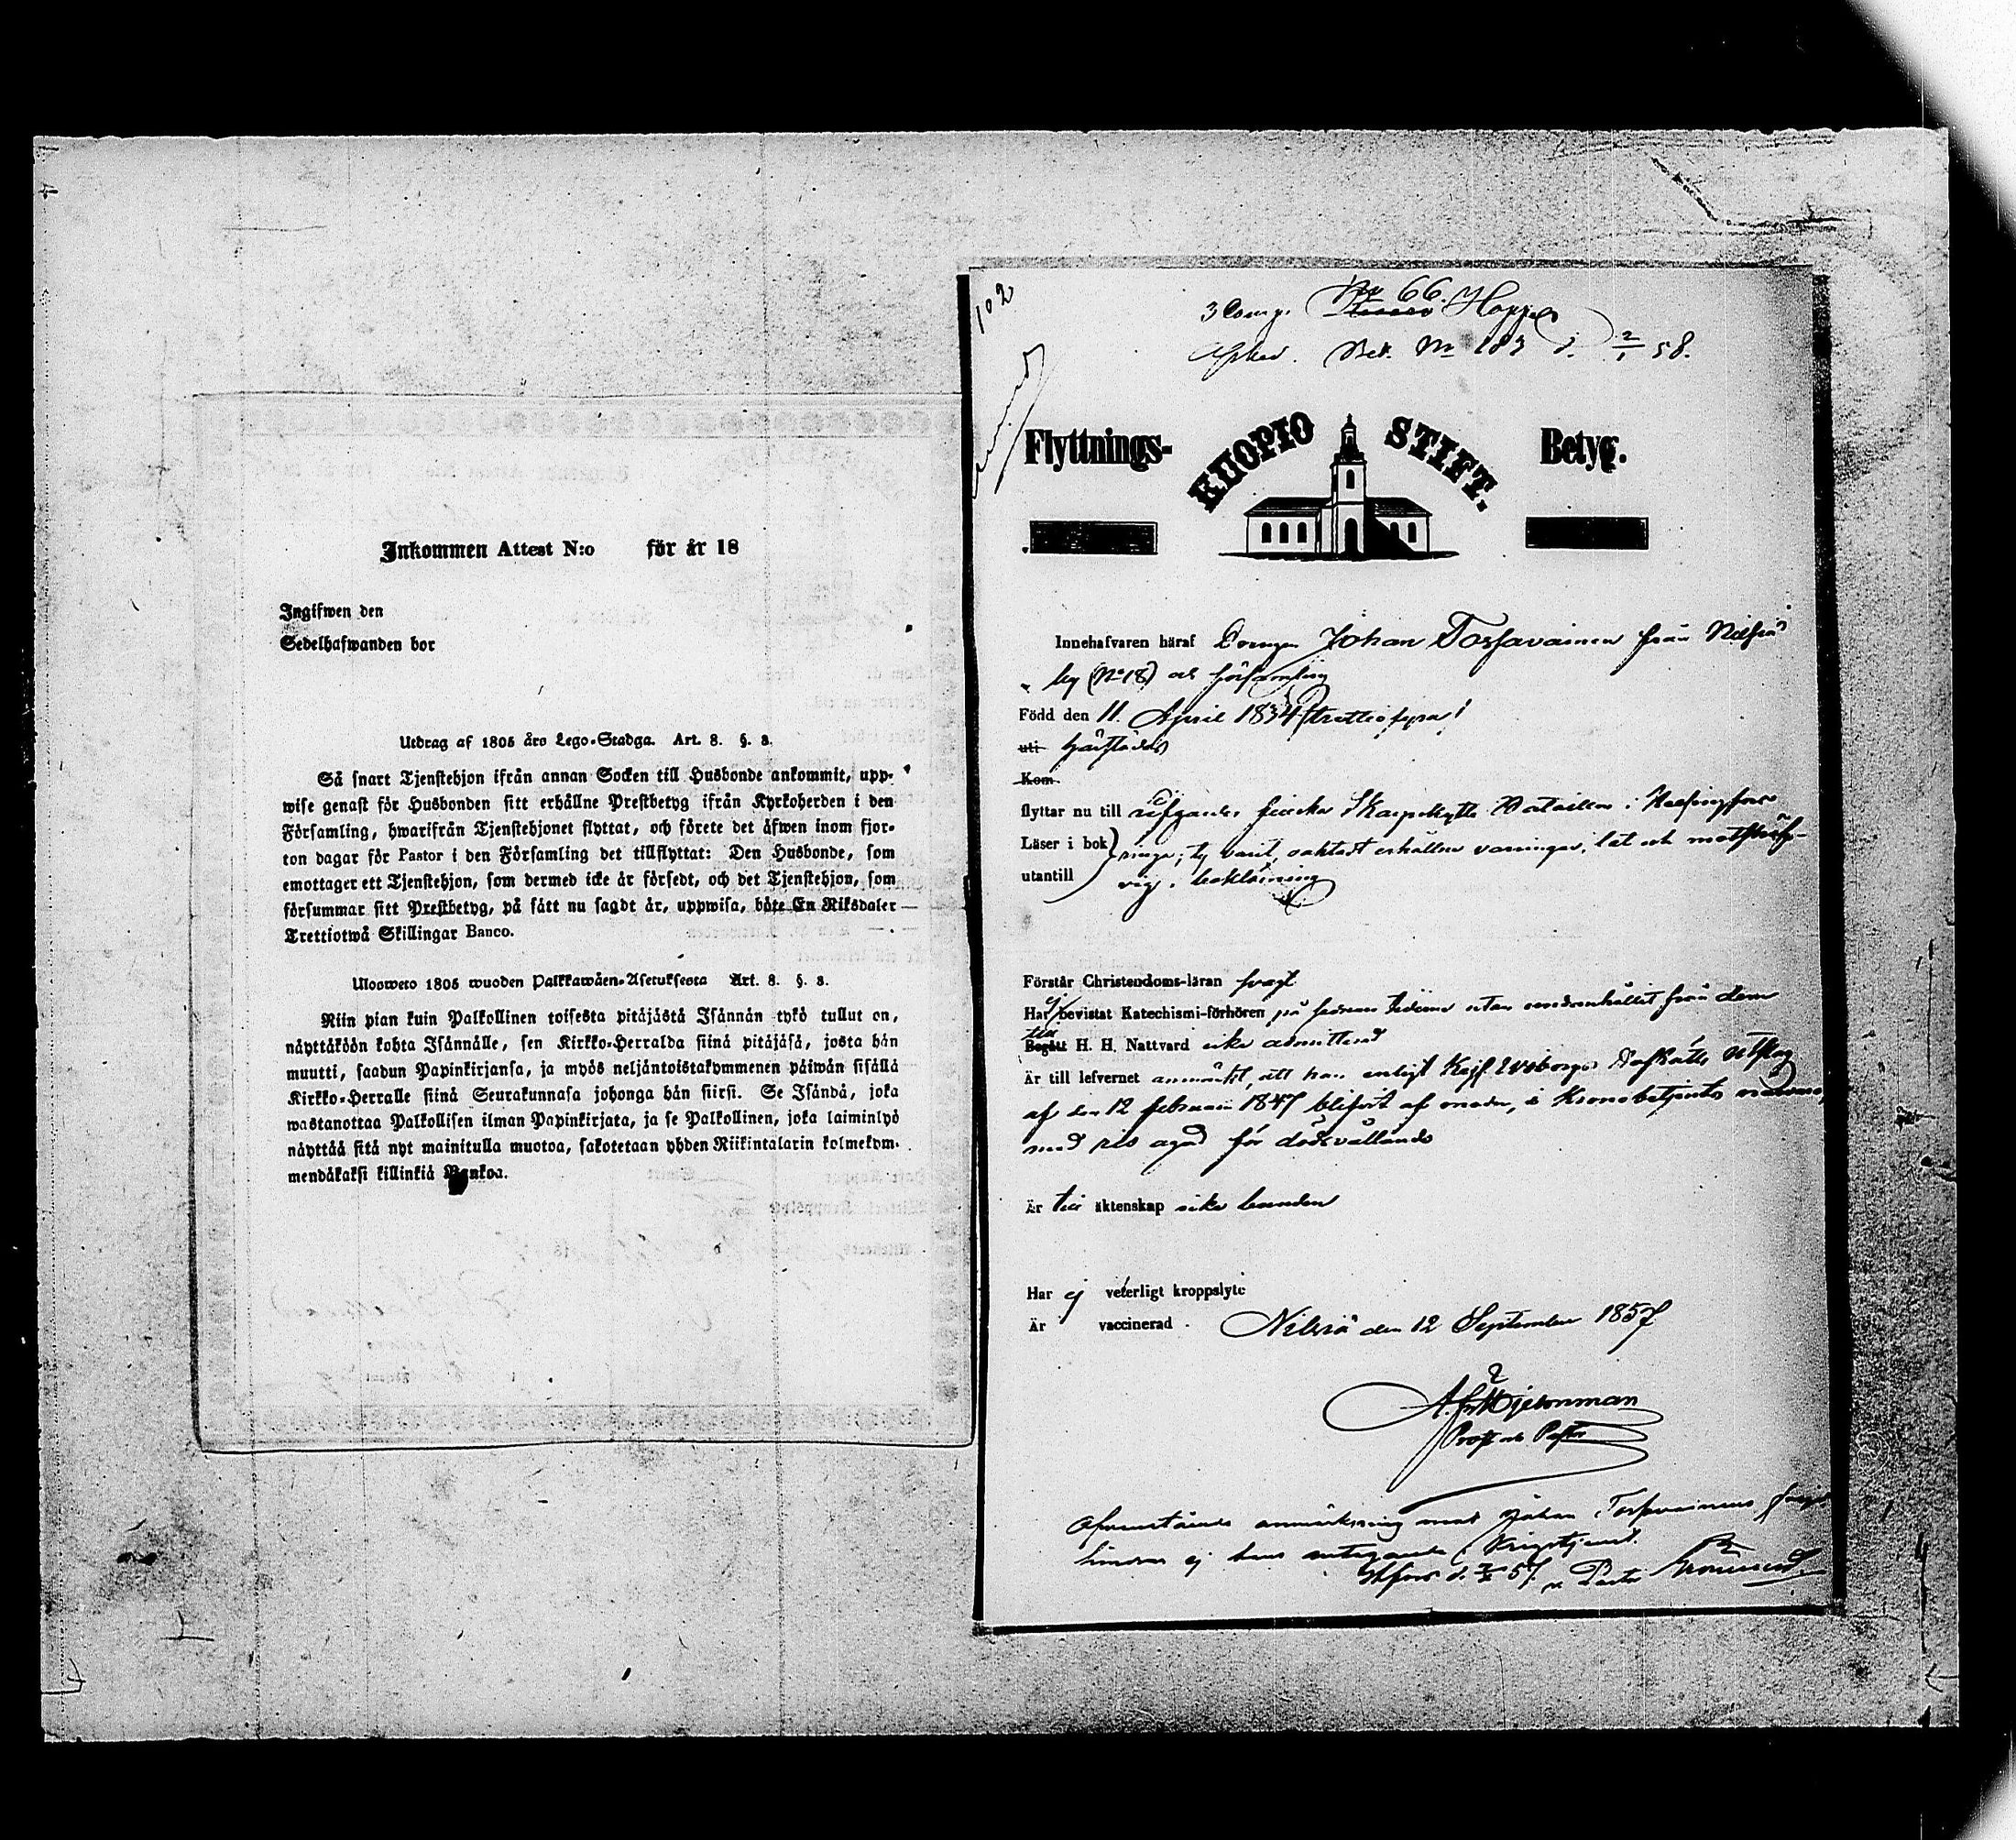 Inkommen Attest N:o för år 18
Ingifwen den
Sedelhafwanden bor
Utdrag af 1805 års Lego-Stadga. Art. 8. §. 8.
Så snart Tjenstehjon ifrån annan Socken till Husbonde ankommit, upp-
wise genast för Husbonden sitt erhållne Prestbetyg ifrån Kyrkoherden i den
Församling, hwarifrån Tjenstehjonet flyttat, och förete det äfwen inom fjor-
ton dagar för Pastor i den Församling det tillflyttat: Den Husbonde, som
emottager ett Tjenstehjon, som dermed icke är försedt, och det Tjenstehjon, som
försummar sitt Prestbetyg, på sätt nu sagdt är, uppwisa, böte En Riksdaler
Trettiotwå Skillingar Banco.
Ulosweto 1805 wuoden Palkkawäen-Asetuksesta Art. 8. §. 8.
Niin pian kuin Palkollinen toisesta pitäjästä Isännän tykö tullut on,
näyttäköön kohta Isännälle, sen Kirkko-Herralda siinä pitäjäsä, josta hän
muutti, saadun Papinkirjansa, ja myös neljäntoistakymmenen päiwän sisällä
Kirkko-Herralle siinä Seurakunnasa johonga hän siirsi. Se Isändä, joka
wastanottaa Palkollisen ilman Papinkirjata, ja se Palkollinen, joka laiminlyö
näyttää sitä nyt mainitulla muotoa, sakotetaan yhden Riikintalarin kolmekym-
mendäkaksi killinkiä Bankoa.
102
3 Comp. No 66. Hopp
Afsked. Bet. No 183 d. 2/1 58.
Flyttnings- KUOPIO STIFT. Betyg.
Innehafvaren häraf Drengen Johan Tossavainen från Nilsiä
by (No 18) och församling
Född den 11 April 1834 (trettiofyra)
uti härstädes
Kom
flyttar nu till Lifgardes finska Skarpskytte Bataillon i Helsingfors
Läser i bok ringa, ty varit, oaktadt erhållna varningar, lat och motsträf-
utantill vig i bokläsning
Förstår Christendoms-läran svagt
Har ej bevistat Katechismi-förhören på sednare tiderne utan undanhållit sig från dem
Begått till H. H. Nattvard icke admitterad
Är till lefvernet anmärkt, att han enligt Kejs. Wiborgs Hofrätts utslag
af den 12 februari 1847 blifvit af modern, i Kronobetjents närvaro,
med ris agad för dödsvållande
Är till äktenskap icke bunden
Har ej veterligt kroppslyte
Är vaccinerad. Nilsiä den 12 September 1857
Prost och Pastor
Ofvanstående anmärkning mot Johan Tossavainens
hindrar ej hans antagande i Krigstjenst.
Hfors d. 57.